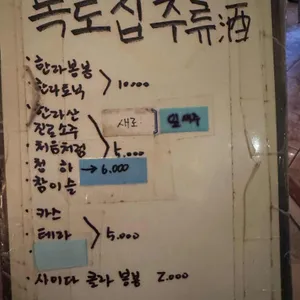 독도집 주류 酒
· 한라봉봉
한라토닉 > 10000
· 한라산
진로소주 새로
처음처럼 > 5.000
· 첨하 → 6.000
참이슬
· 카스
테라 > 5.000
· 사이다 콜라 봉봉 2.000